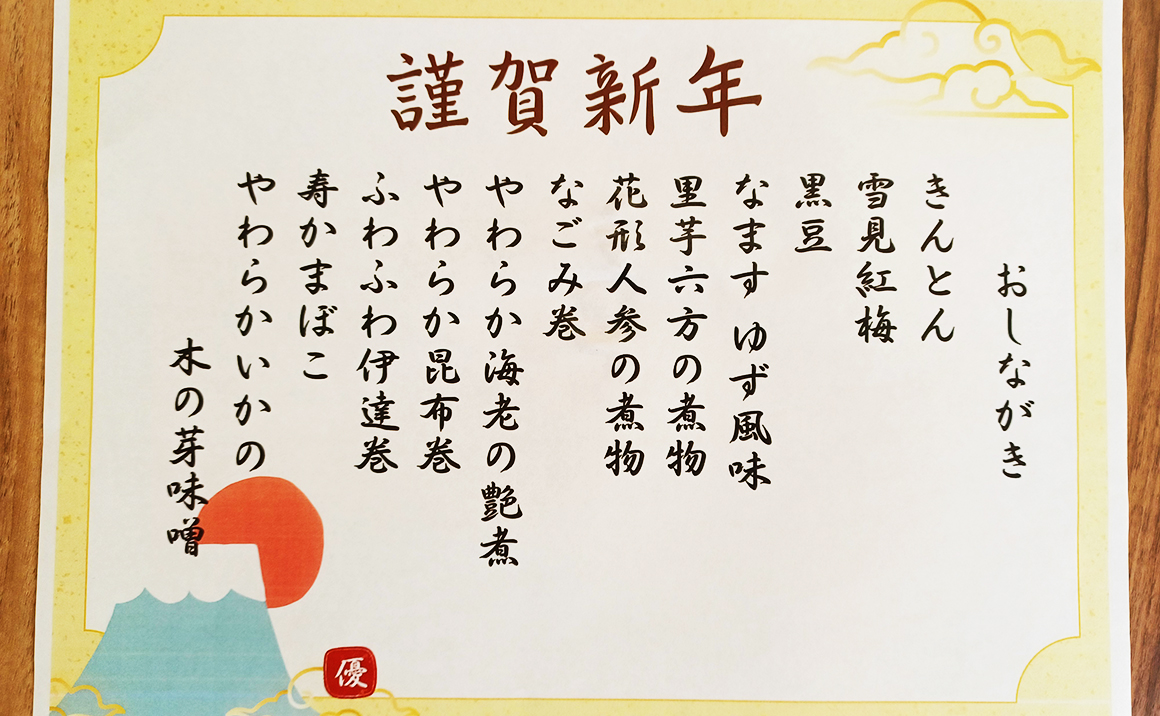 謹賀新年
おしながき
きんとん
雪見紅梅
黒豆
なます ゆず風味
里芋六方の煮物
花形人参の煮物
なごみ巻
やわらか海老の艶煮
やわらか昆布巻
ふわふわ伊達巻
寿かまぼこ
やわらかいかの
木の芽味噌
優